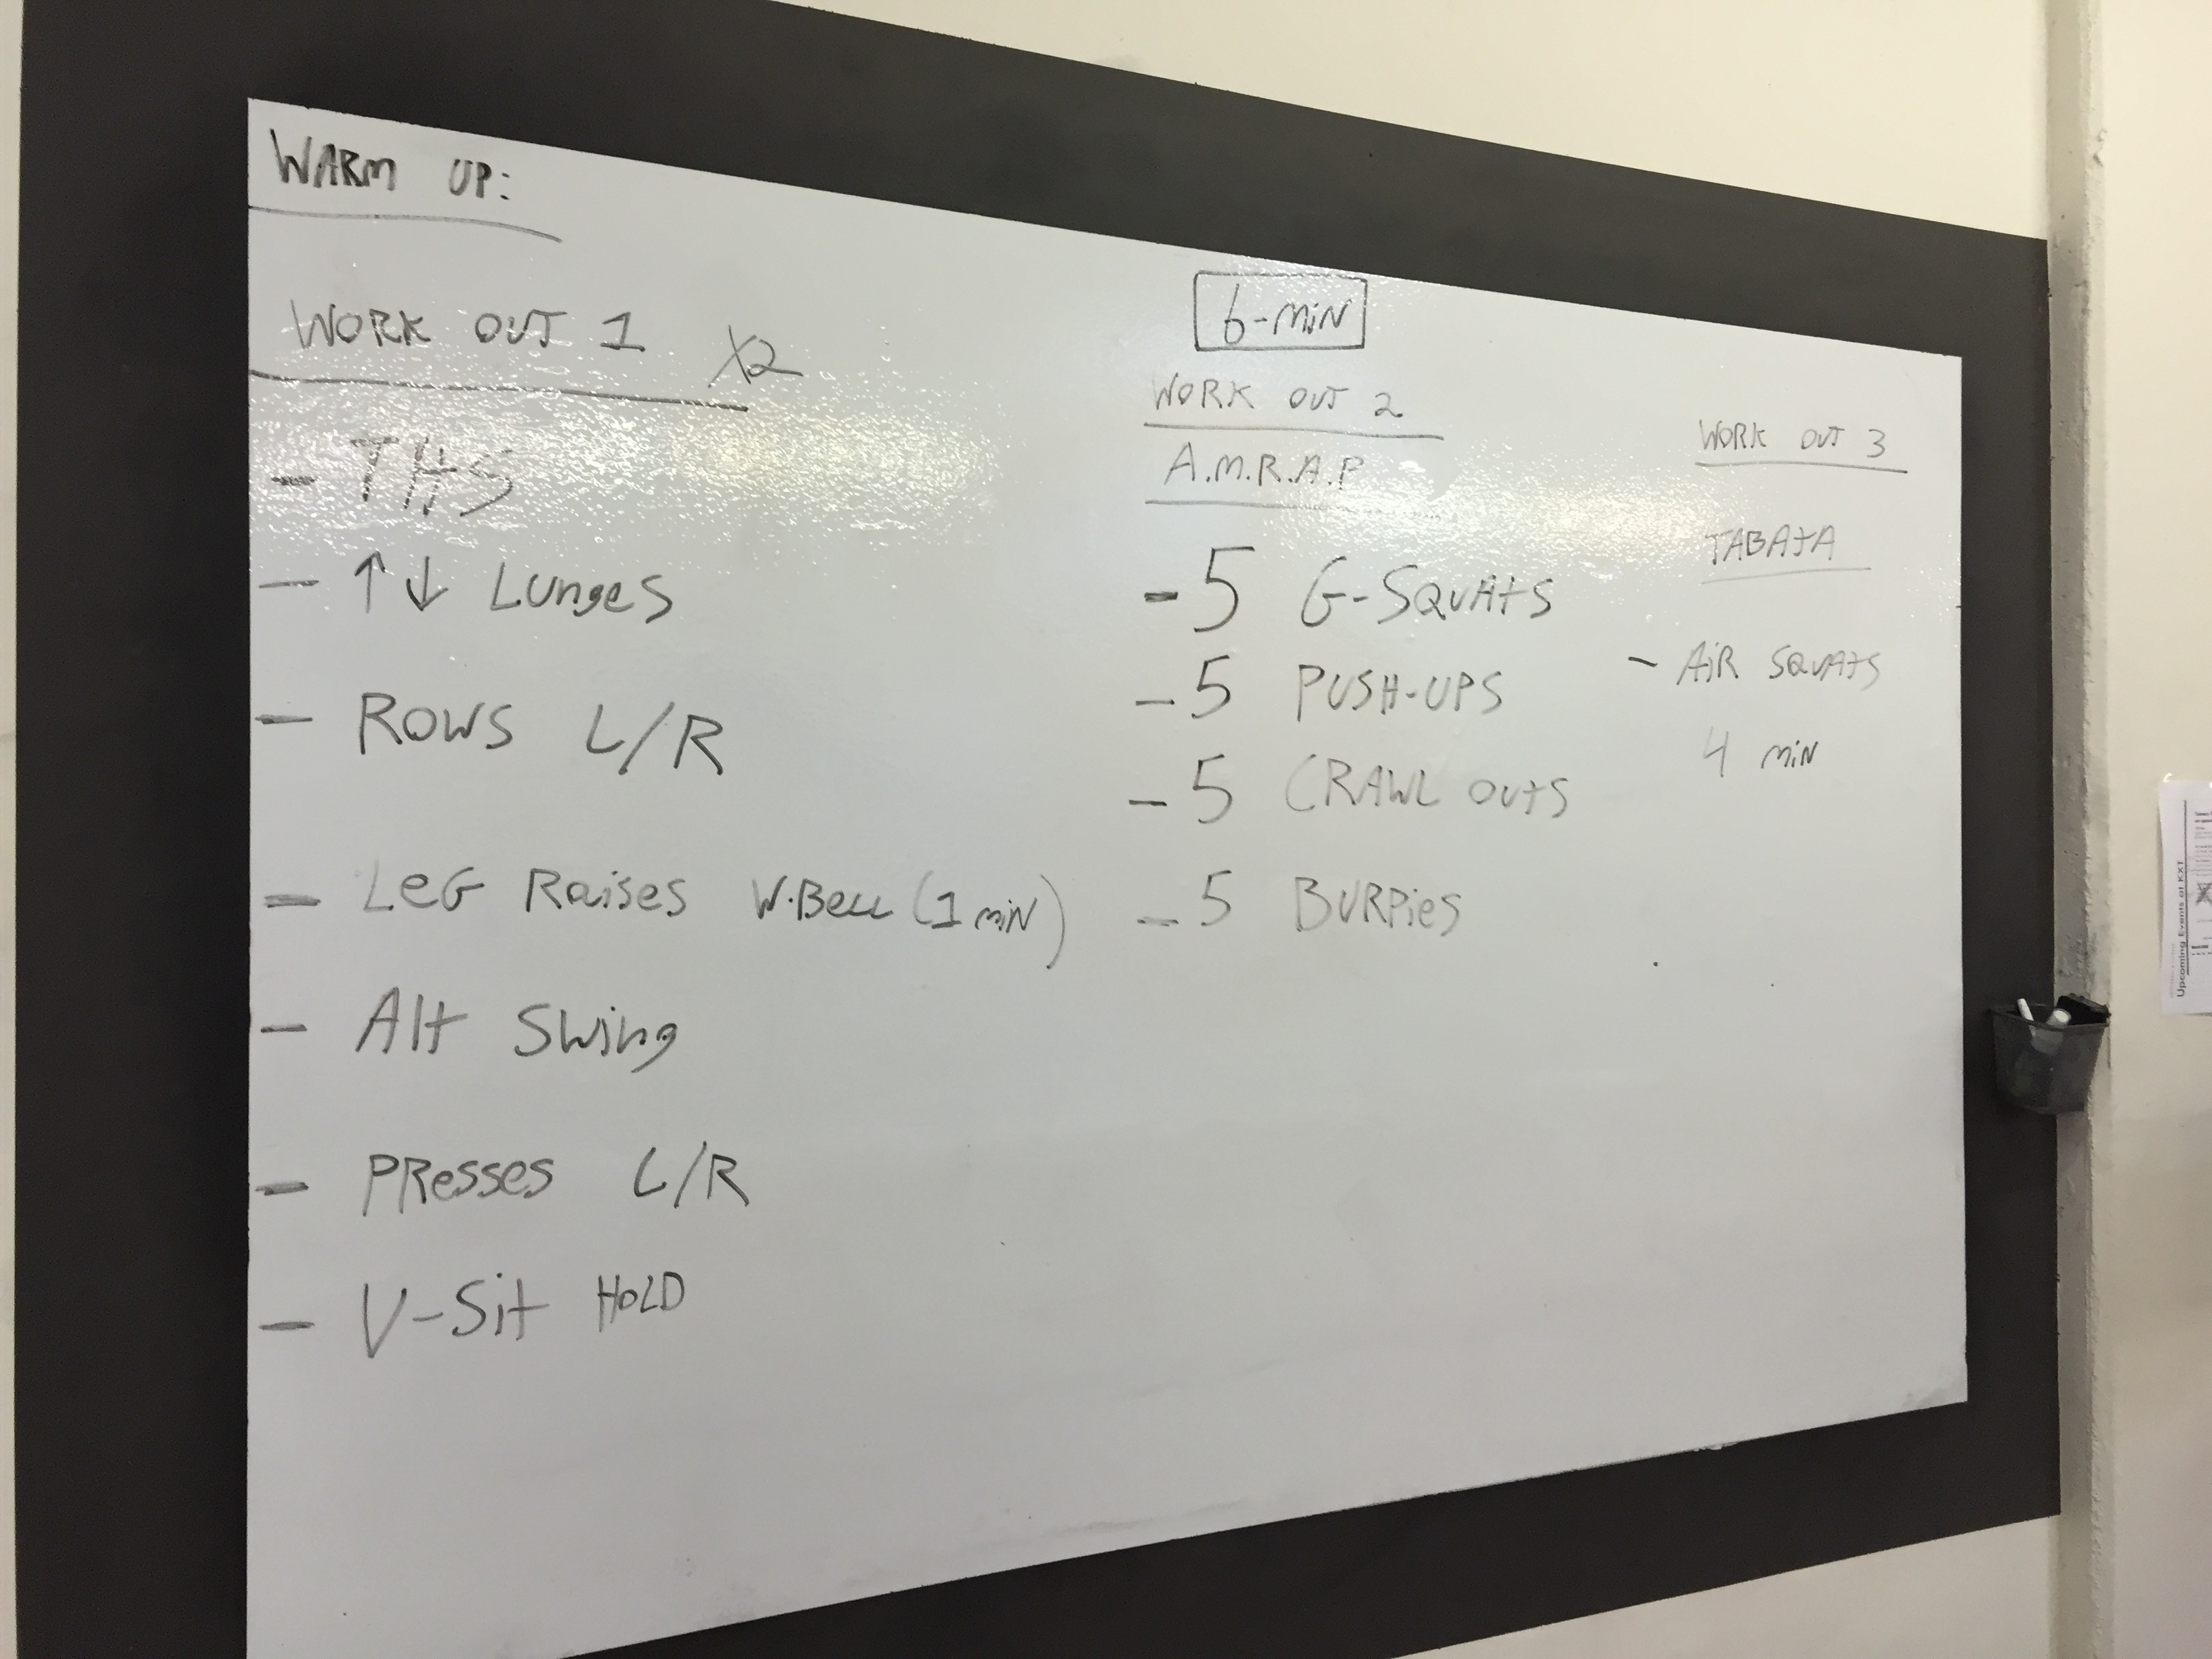 WARM UP:
WORK OUT 1 X2
- THS
- ↑↓ Lunges
- ROWS L/R
- LEG Raises W.Bell (1 miN)
- Alt Swing
- PResses L/R
- V-Sit HOLD
6-miN
WORK OUT 2
A.M.R.A.P
- 5 G-SQUATS
- 5 PUSH-UPS
- 5 CRAWL OUTS
- 5 BURPies
WORK OUT 3
TABATA
- AiR SQUATS
4 miN
Upcoming Events at KXT